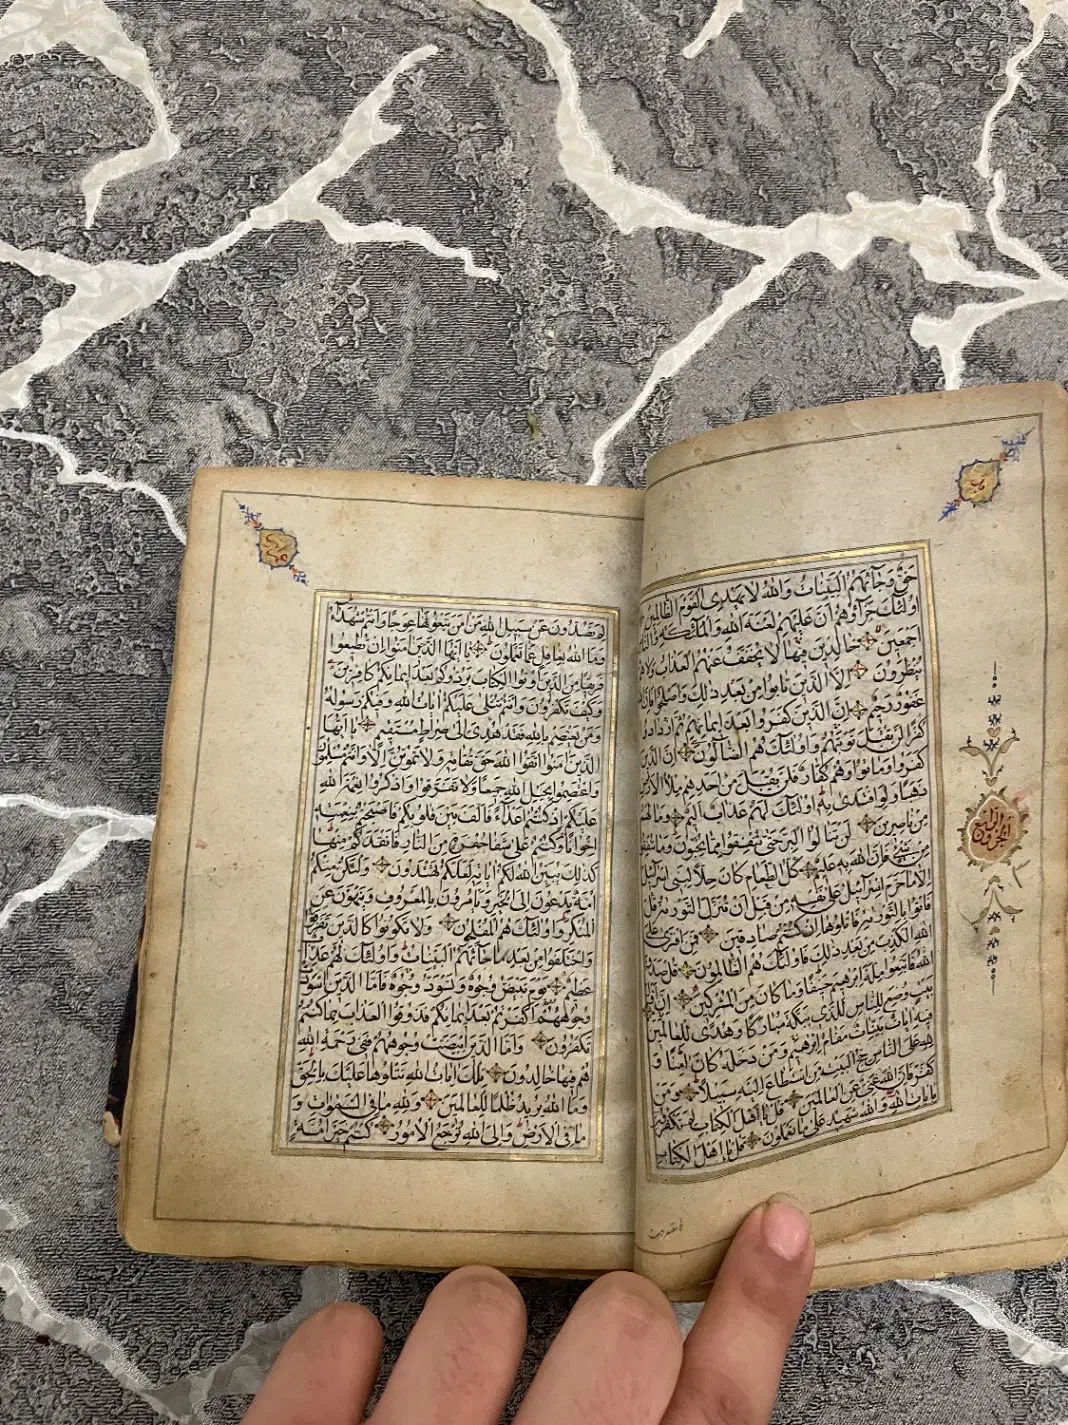 حق وجاءهم البينات والله لا يهدي القوم الظالمين
اولئك جزاؤهم ان عليهم لعنة الله والملئكة والناس
اجمعين خالدين فيها لا يخفف عنهم العذاب ولا هم
ينظرون الا الذين تابوا من بعد ذلك واصلحوا فان
غفور رحيم ان الذين كفروا بعد ايمانهم ثم ازدادوا
كفرا لن تقبل توبتهم واولئك هم الضالون ان الذين
كفروا وماتوا وهم كفار فلن يقبل من احدهم ملأ الارض
ذهبا ولو افتدى به اولئك لهم عذاب اليم وما لهم
من ناصرين لن تنالوا البر حتى تنفقوا مما تحبون وما تنفقوا
من شيء فان الله به عليم كل الطعام كان حلا لبني اسرائيل
الا ما حرم اسرائيل على نفسه من قبل ان تنزل التورية قل
فاتوا بالتورية فاتلوها ان كنتم صادقين فمن افترى على
الله الكذب من بعد ذلك فاولئك هم الظالمون قل صدق
الله فاتبعوا ملة ابرهيم حنيفا وما كان من المشركين ان اول
بيت وضع للناس للذي ببكة مباركا وهدى للعالمين
فيه ايات بينات مقام ابرهيم ومن دخله كان امنا و
لله على الناس حج البيت من استطاع اليه سبيلا ومن
كفر فان الله غني عن العالمين قل يا اهل الكتاب لم تكفرون
بايات الله والله شهيد على ما تعملون قل يا اهل الكتاب
الجزو الرابع
لم تصدون عن سبيل الله من امن تبغونها عوجا وانتم شهداء
وما الله بغافل عما تعملون يا ايها الذين امنوا ان تطيعوا
فريقا من الذين اوتوا الكتاب يردوكم بعد ايمانكم كافرين
وكيف تكفرون وانتم تتلى عليكم ايات الله وفيكم رسوله
ومن يعتصم بالله فقد هدي الى صراط مستقيم يا ايها
الذين امنوا اتقوا الله حق تقاته ولا تموتن الا وانتم مسلمون
واعتصموا بحبل الله جميعا ولا تفرقوا واذكروا نعمة الله
عليكم اذ كنتم اعداء فالف بين قلوبكم فاصبحتم بنعمته
اخوانا وكنتم على شفا حفرة من النار فانقذكم منها
كذلك يبين الله لكم اياته لعلكم تهتدون ولتكن منكم
امة يدعون الى الخير ويامرون بالمعروف وينهون عن
المنكر واولئك هم المفلحون ولا تكونوا كالذين تفرقوا
واختلفوا من بعد ما جائهم البينات واولئك لهم عذاب
عظيم يوم تبيض وجوه وتسود وجوه فاما الذين اسودت
وجوههم اكفرتم بعد ايمانكم فذوقوا العذاب بما كنتم
تكفرون واما الذين ابيضت وجوههم ففي رحمة الله
هم فيها خالدون تلك ايات الله نتلوها عليك بالحق
وما الله يريد ظلما للعالمين ولله ما في السموات و
ما في الارض والى الله ترجع الامور كنتم خير امة